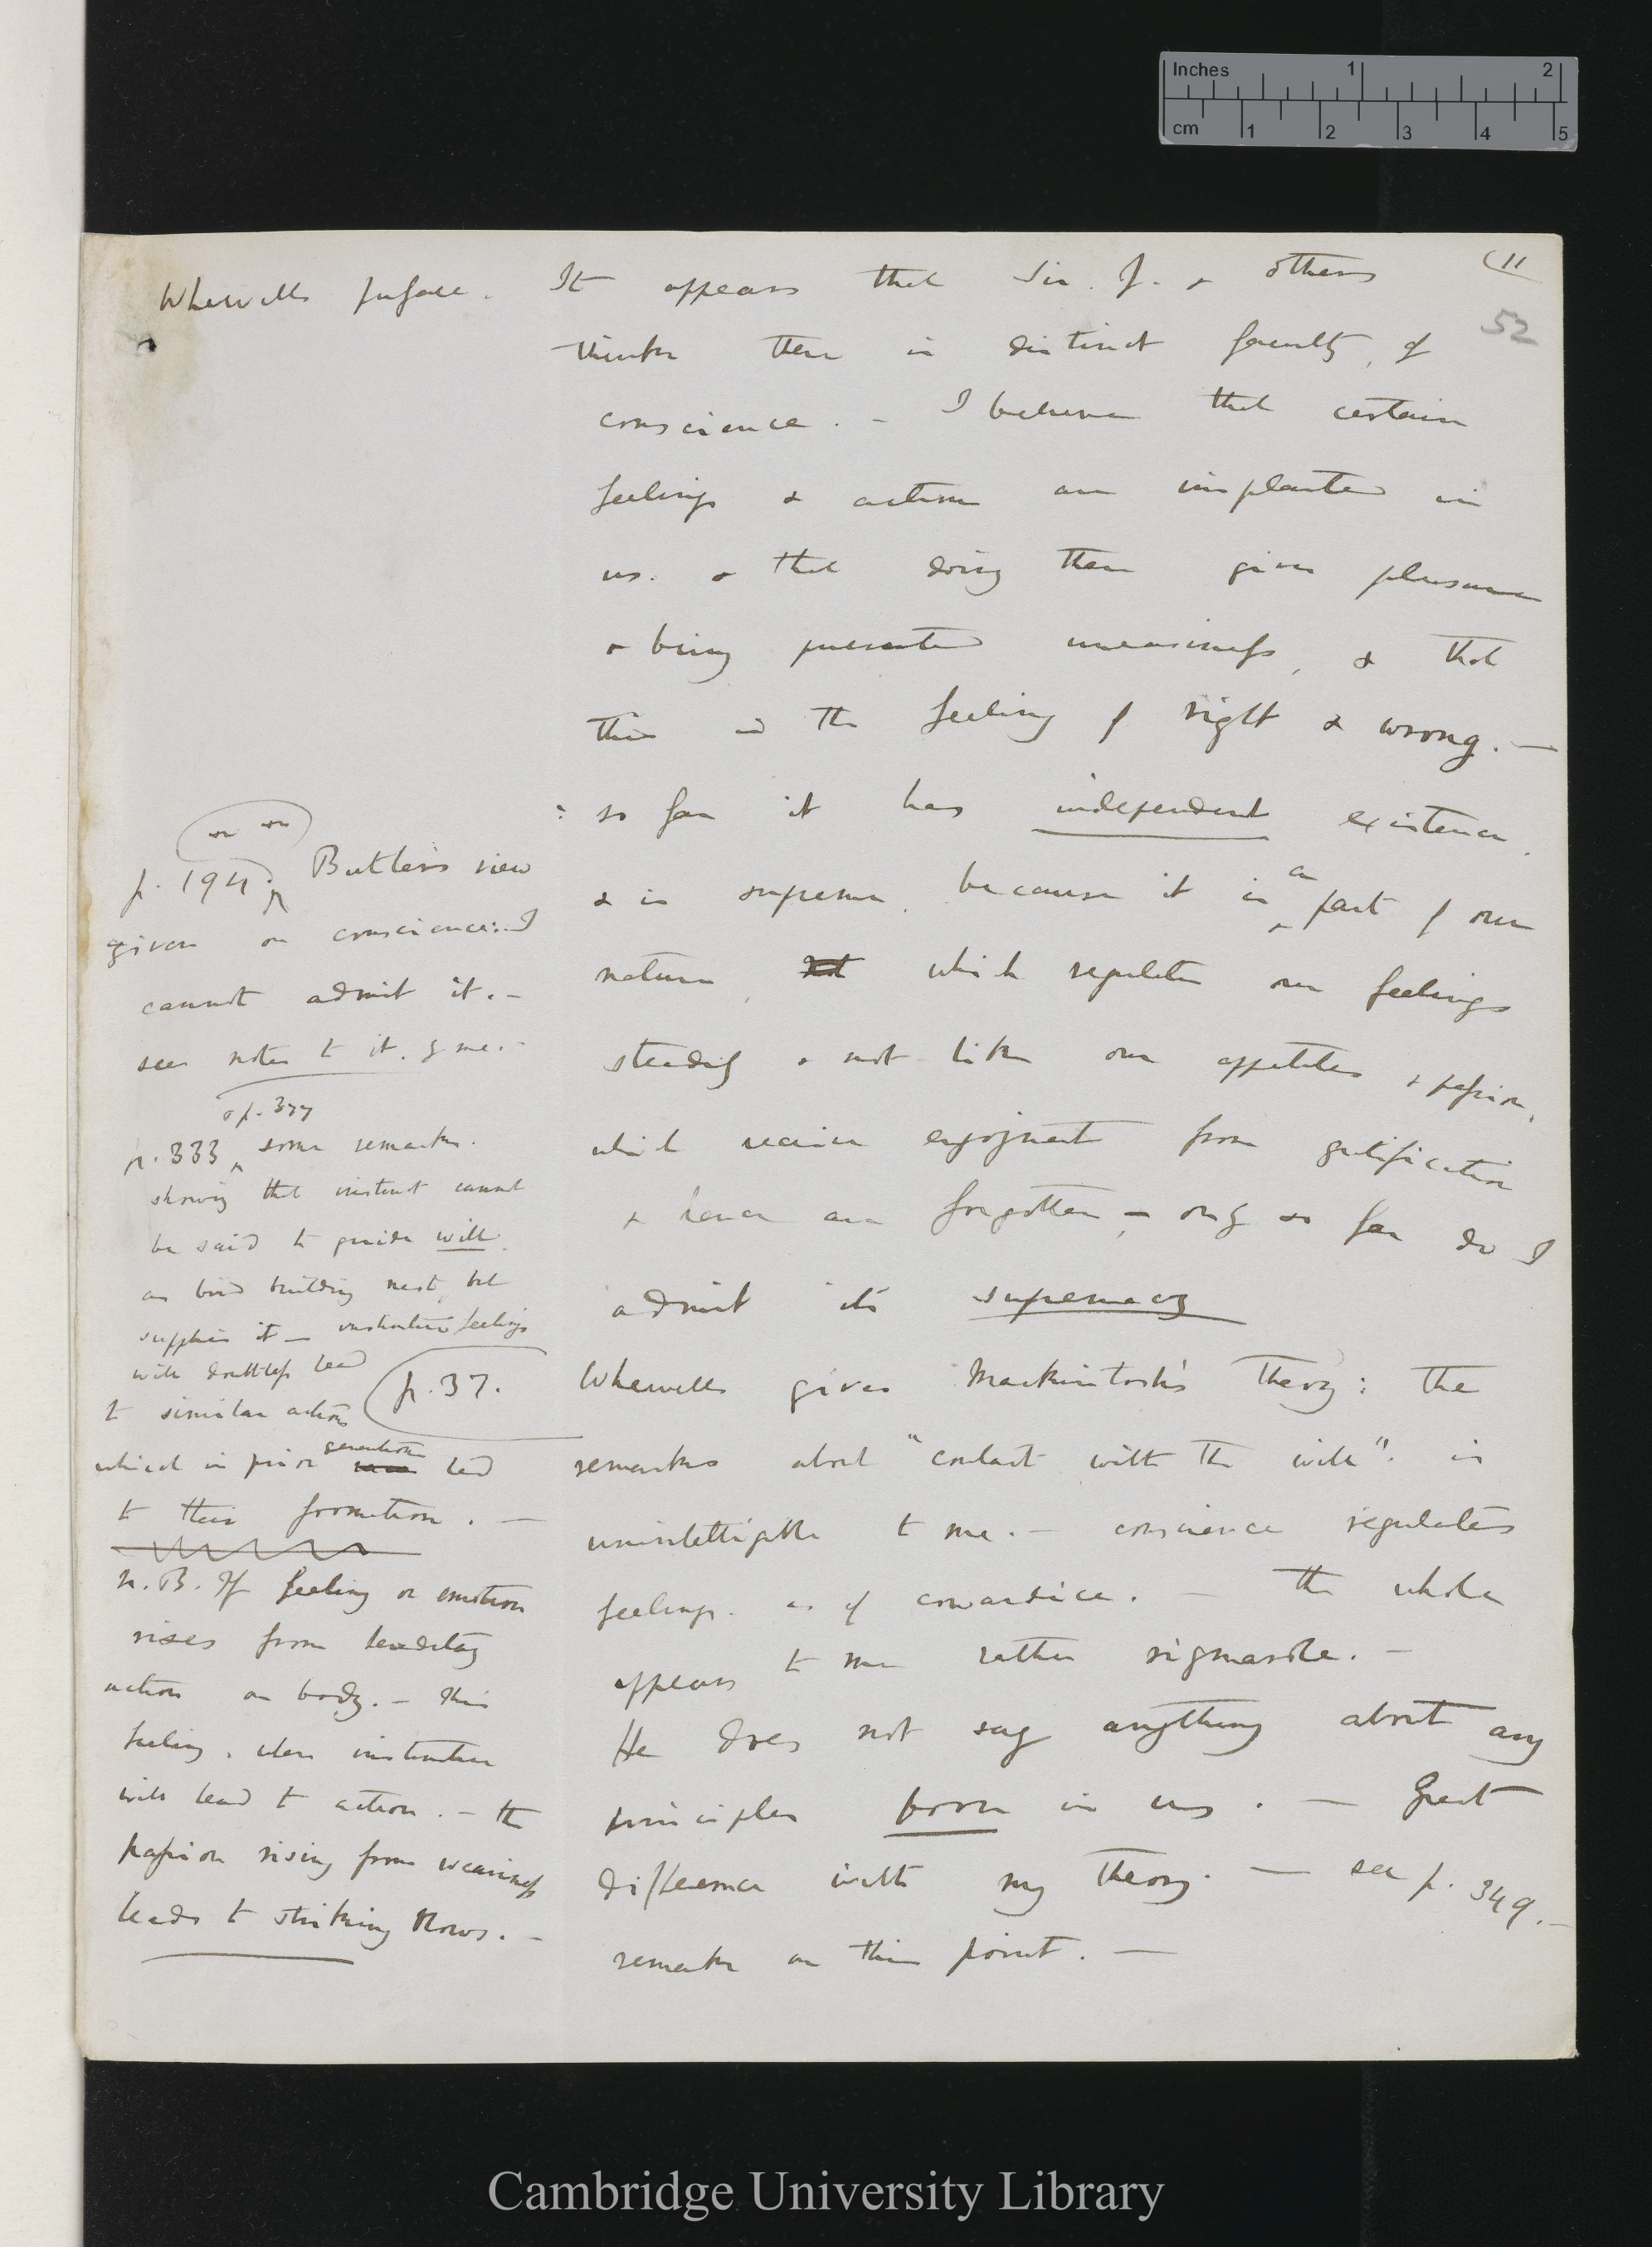 Inches 1 2
cm 1 2 3 4 5
(11
52
Whewells preface.
It appears that Sir. J. & others
thinks there is distinct faculty, of
conscience. – I believe that certain
feelings & actions are implanted in
us. & that doing them gives pleasure
& being prevented uneasiness, & that
this is the feeling of right & wrong. —
: so far it has independent existence,
& is supreme, because it is a part of our
nature, not which regulates our feelings
steadily & not like our appetites & passion,
which receive enjoyment from gratification
& hence are forgotten, – only so far do I
admit its supremacy
Whewells gives Mackintosh's theory: the
remarks about "contact with the will": is
unintelligible to me. – conscience regulates
feelings. as of cowardice. – the whole
appears to me rather rigmarole. –
He does not say anything about any
principles born in us. — Great
difference with my theory. — see p. 349. –
remarks on this point. —
p. 194. Butler's view
given on conscience: I
cannot admit it. –
see notes to it. by me. –
& p. 377
p. 333 some remarks.
showing that instinct cannot
be said to guide will.
as bird building nest, but
supplies it – instinctive feelings
will doubtless lead
to similar actions
p. 37.
generation
which in prior led
to their formation. —
N.B. If feeling or emotion
rises from hereditary
action on body. – this
feeling, when instinctive
will lead to action. – the
passion rising from weariness
leads to striking blows. –
Cambridge University Library